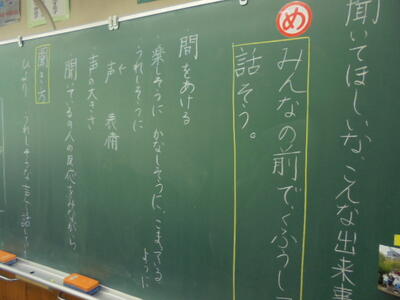 聞いてほしいな、こんな出来事
め
みんなの前で、くふうして
話そう。
間をあける
・楽しそうに かなしそうに、こまっているように
うれしそうに
声 表情
・声の大きさ
聞いている人の反応をみながら
聞き方